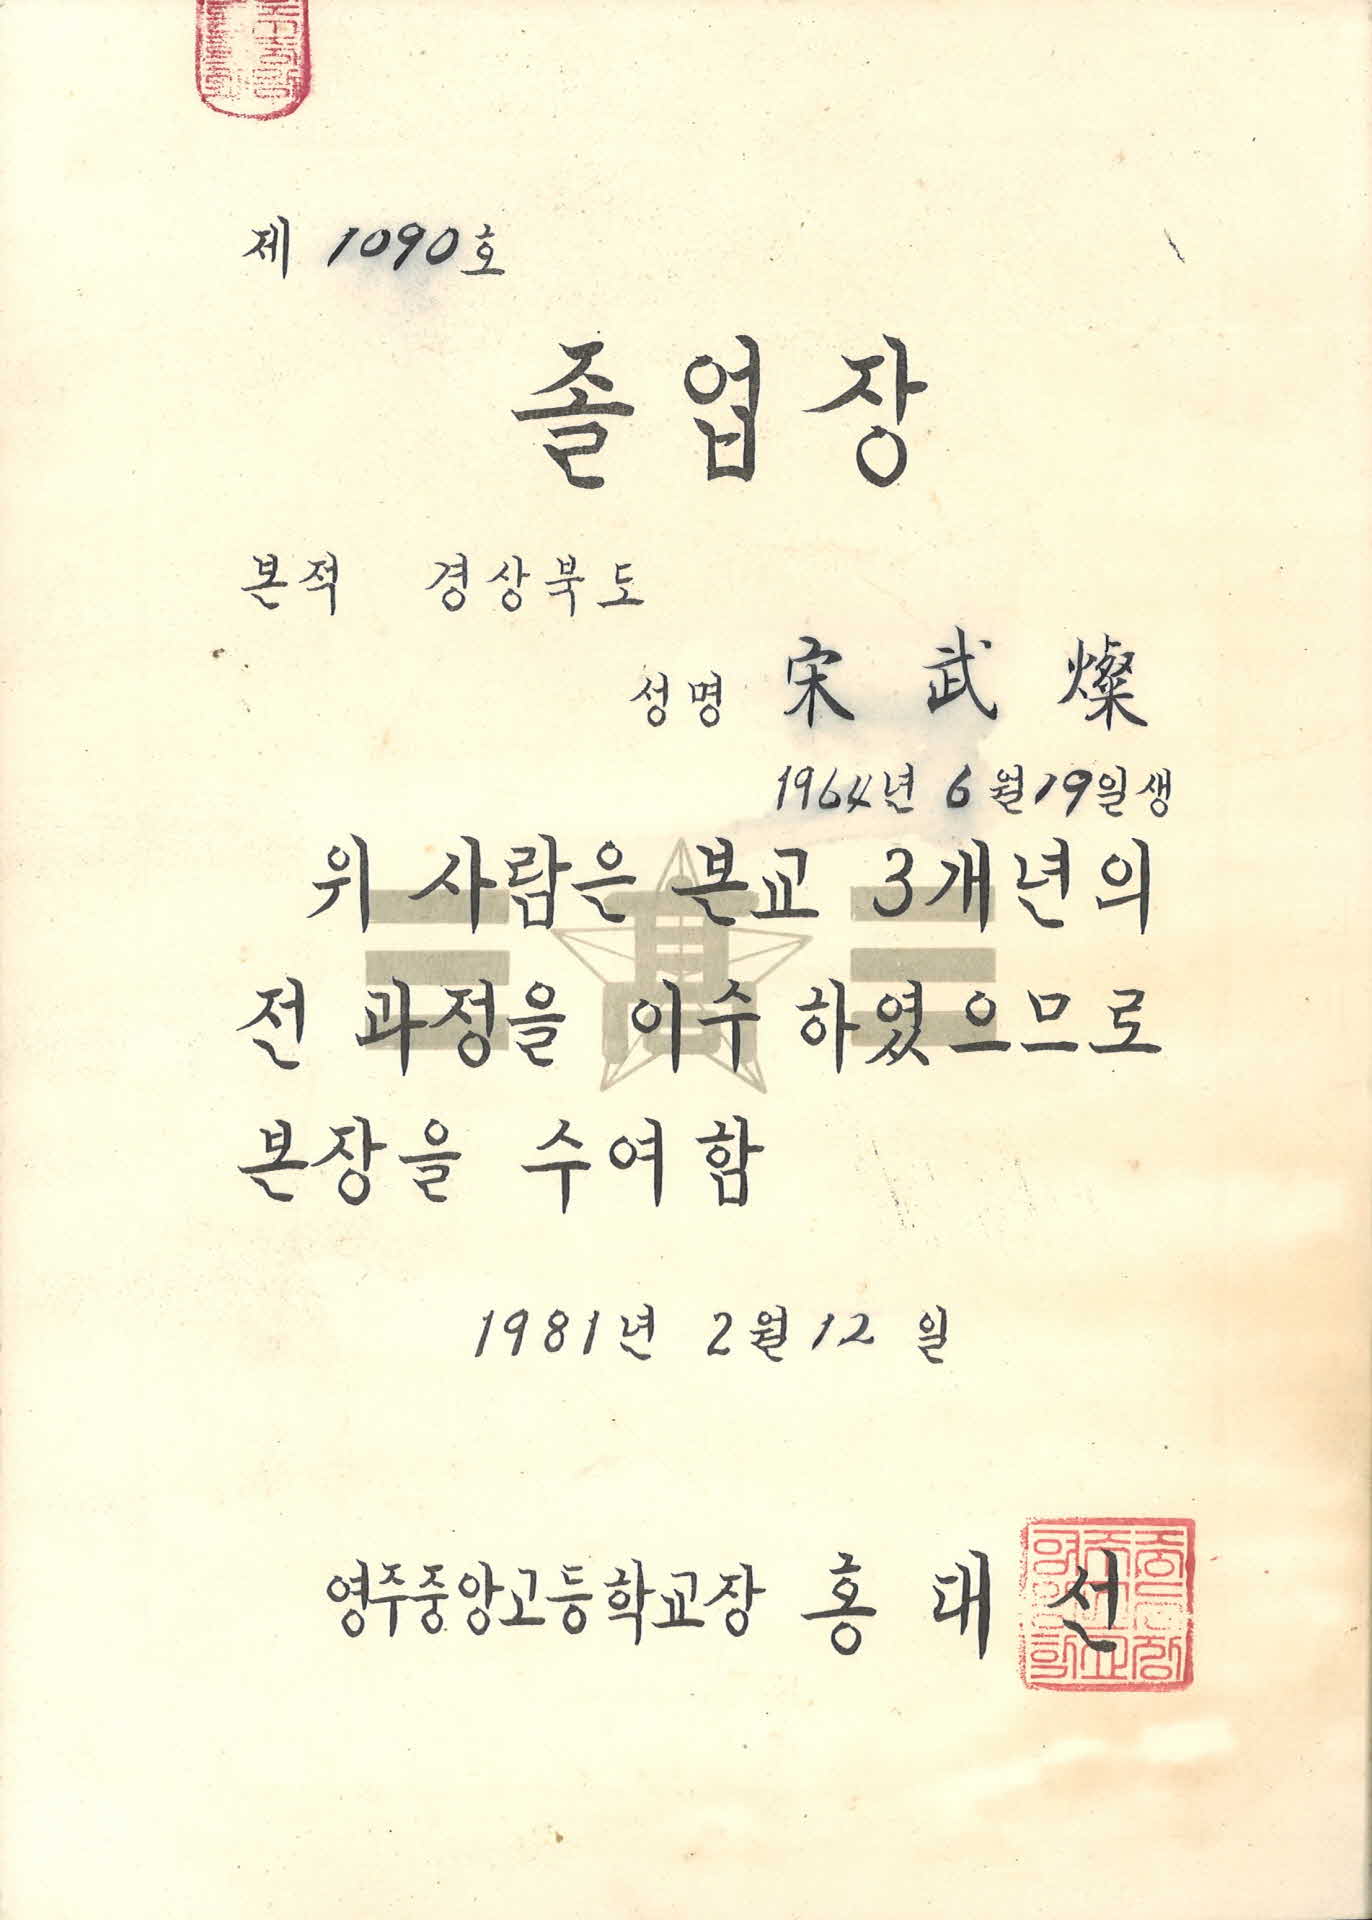 제 1090호
졸업장
본적 경상북도
성명 宋武燦
1964년 6월19일생
위 사람은 본교 3개년의
전 과정을 이수 하였으므로
본장을 수여함
1981년 2월12일
영주중앙고등학교장 홍대선
高